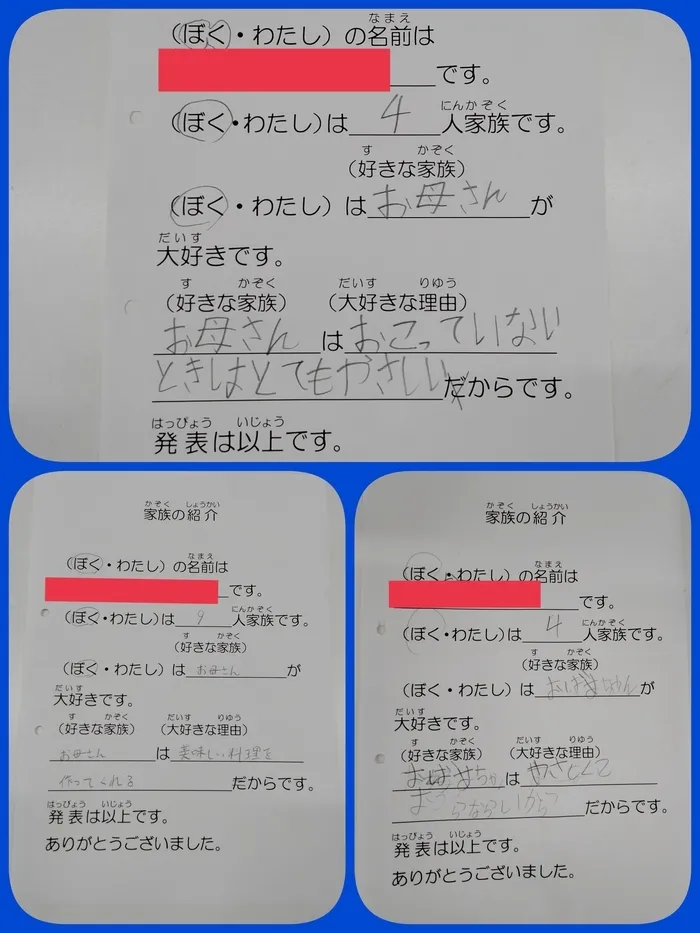 (ぼく・わたし)の名前は
です。
(ぼく・わたし)は 4 人家族です。
(好きな家族)
(ぼく・わたし)は お母さん が
大好きです。
(好きな家族) (大好きな理由)
お母さん は おこっていない
ときはとてもやさしい だからです。
発表は以上です。
家族の紹介
(ぼく・わたし)の名前は
です。
(ぼく・わたし)は 9 人家族です。
(好きな家族)
(ぼく・わたし)は お母さん が
大好きです。
(好きな家族) (大好きな理由)
お母さん は 美味しい料理を
作ってくれる だからです。
発表は以上です。
ありがとうございました。
家族の紹介
(ぼく・わたし)の名前は
です。
(ぼく・わたし)は 4 人家族です。
(好きな家族)
(ぼく・わたし)は が
大好きです。
(好きな家族) (大好きな理由)
は やさしくて
だからです。
発表は以上です。
ありがとうございました。